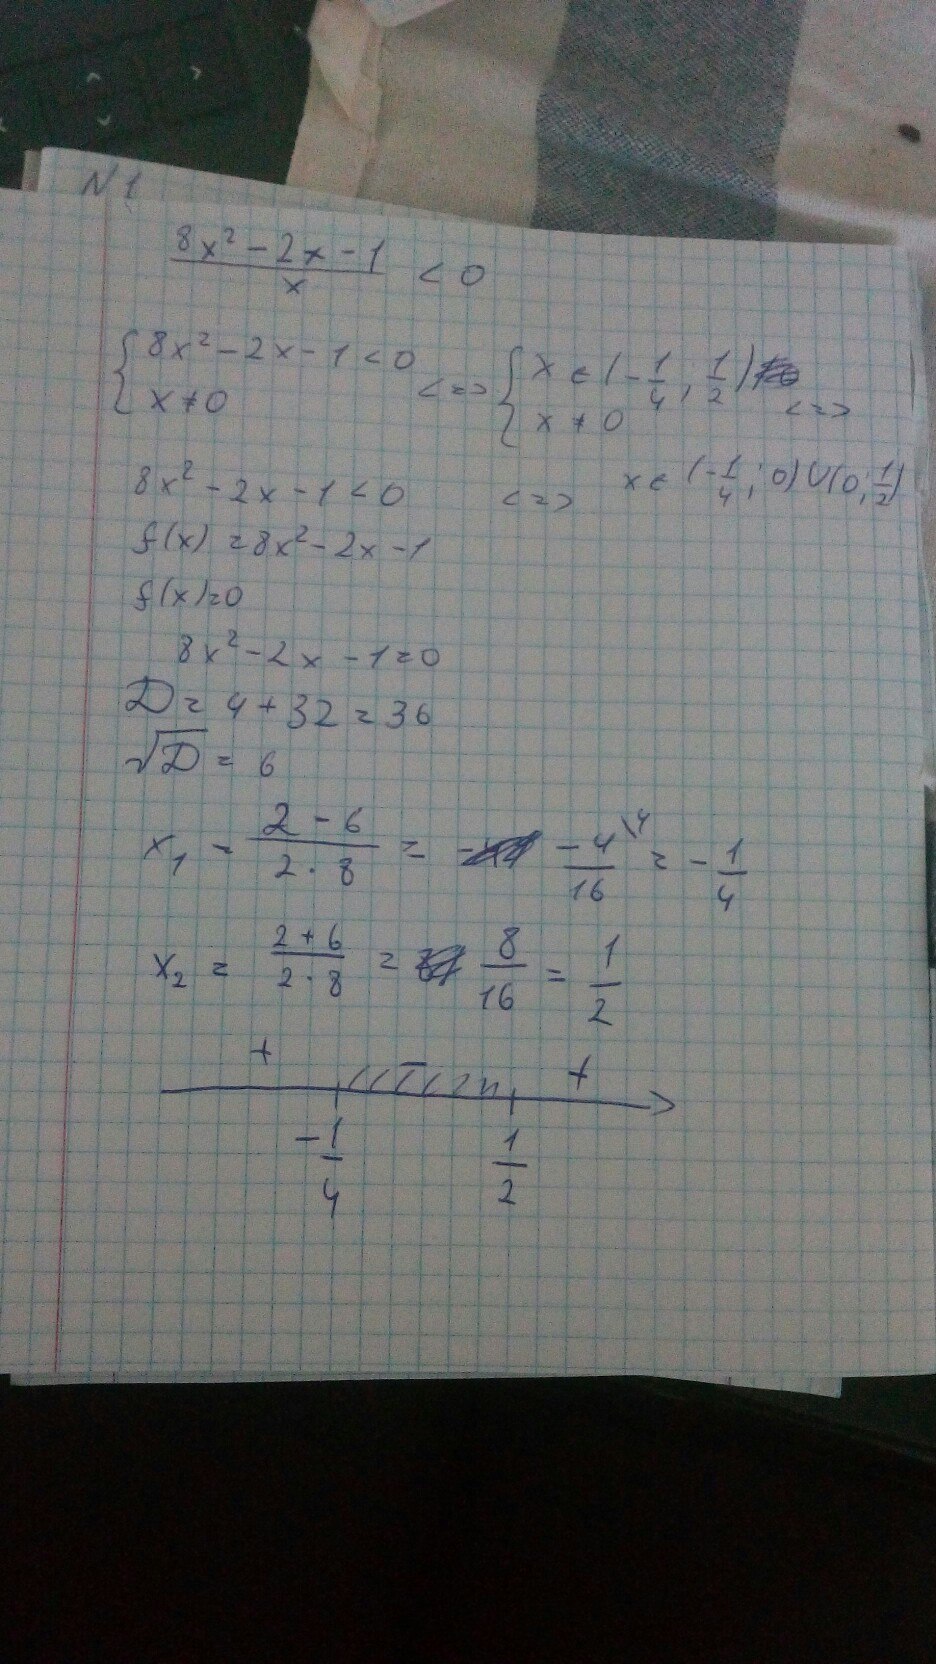 N 1
8x² - 2x - 1
x
< 0
{ 8x² - 2x - 1 < 0
x ≠ 0
<=>
{ x ∈ (-1/4, 1/2)
x ≠ 0
<=>
<=> x ∈ (-1/4; 0) U (0; 1/2)
8x² - 2x - 1 < 0
f(x) = 8x² - 2x - 1
f(x) = 0
8x² - 2x - 1 = 0
D = 4 + 32 = 36
√D = 6
x₁ = (2 - 6)/(2 · 8) = -4\4/16 = -1/4
x₂ = (2 + 6)/(2 · 8) = 8/16 = 1/2
+ - +
-1/4 1/2